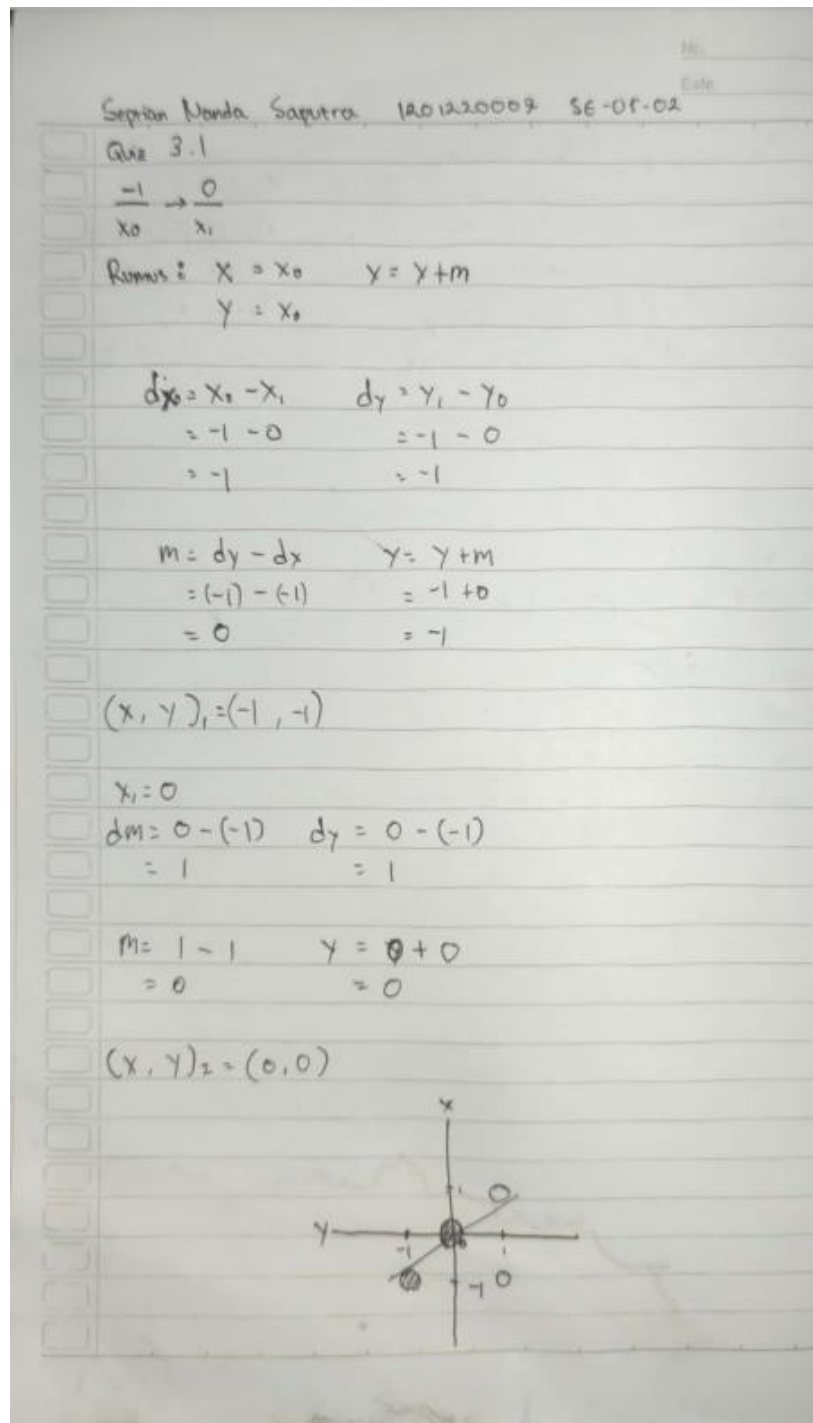 No.
Date
Septian Nanda Saputra 1201220009 SE-05-02
Quiz 3.1
-1 → 0
x0 x1
Rumus : X = x0 Y = Y+m
Y = x0
dx0 = x0 - x1 dy = y1 - y0
= -1 - 0 = -1 - 0
= -1 = -1
m = dy - dx Y = Y + m
= (-1) - (-1) = -1 + 0
= 0 = -1
(X, Y)1 = (-1, -1)
x1 = 0
dm = 0 - (-1) dy = 0 - (-1)
= 1 = 1
m = 1 - 1 Y = 0 + 0
= 0 = 0
(X, Y)2 = (0,0)
X
1
Y -1 1
-1